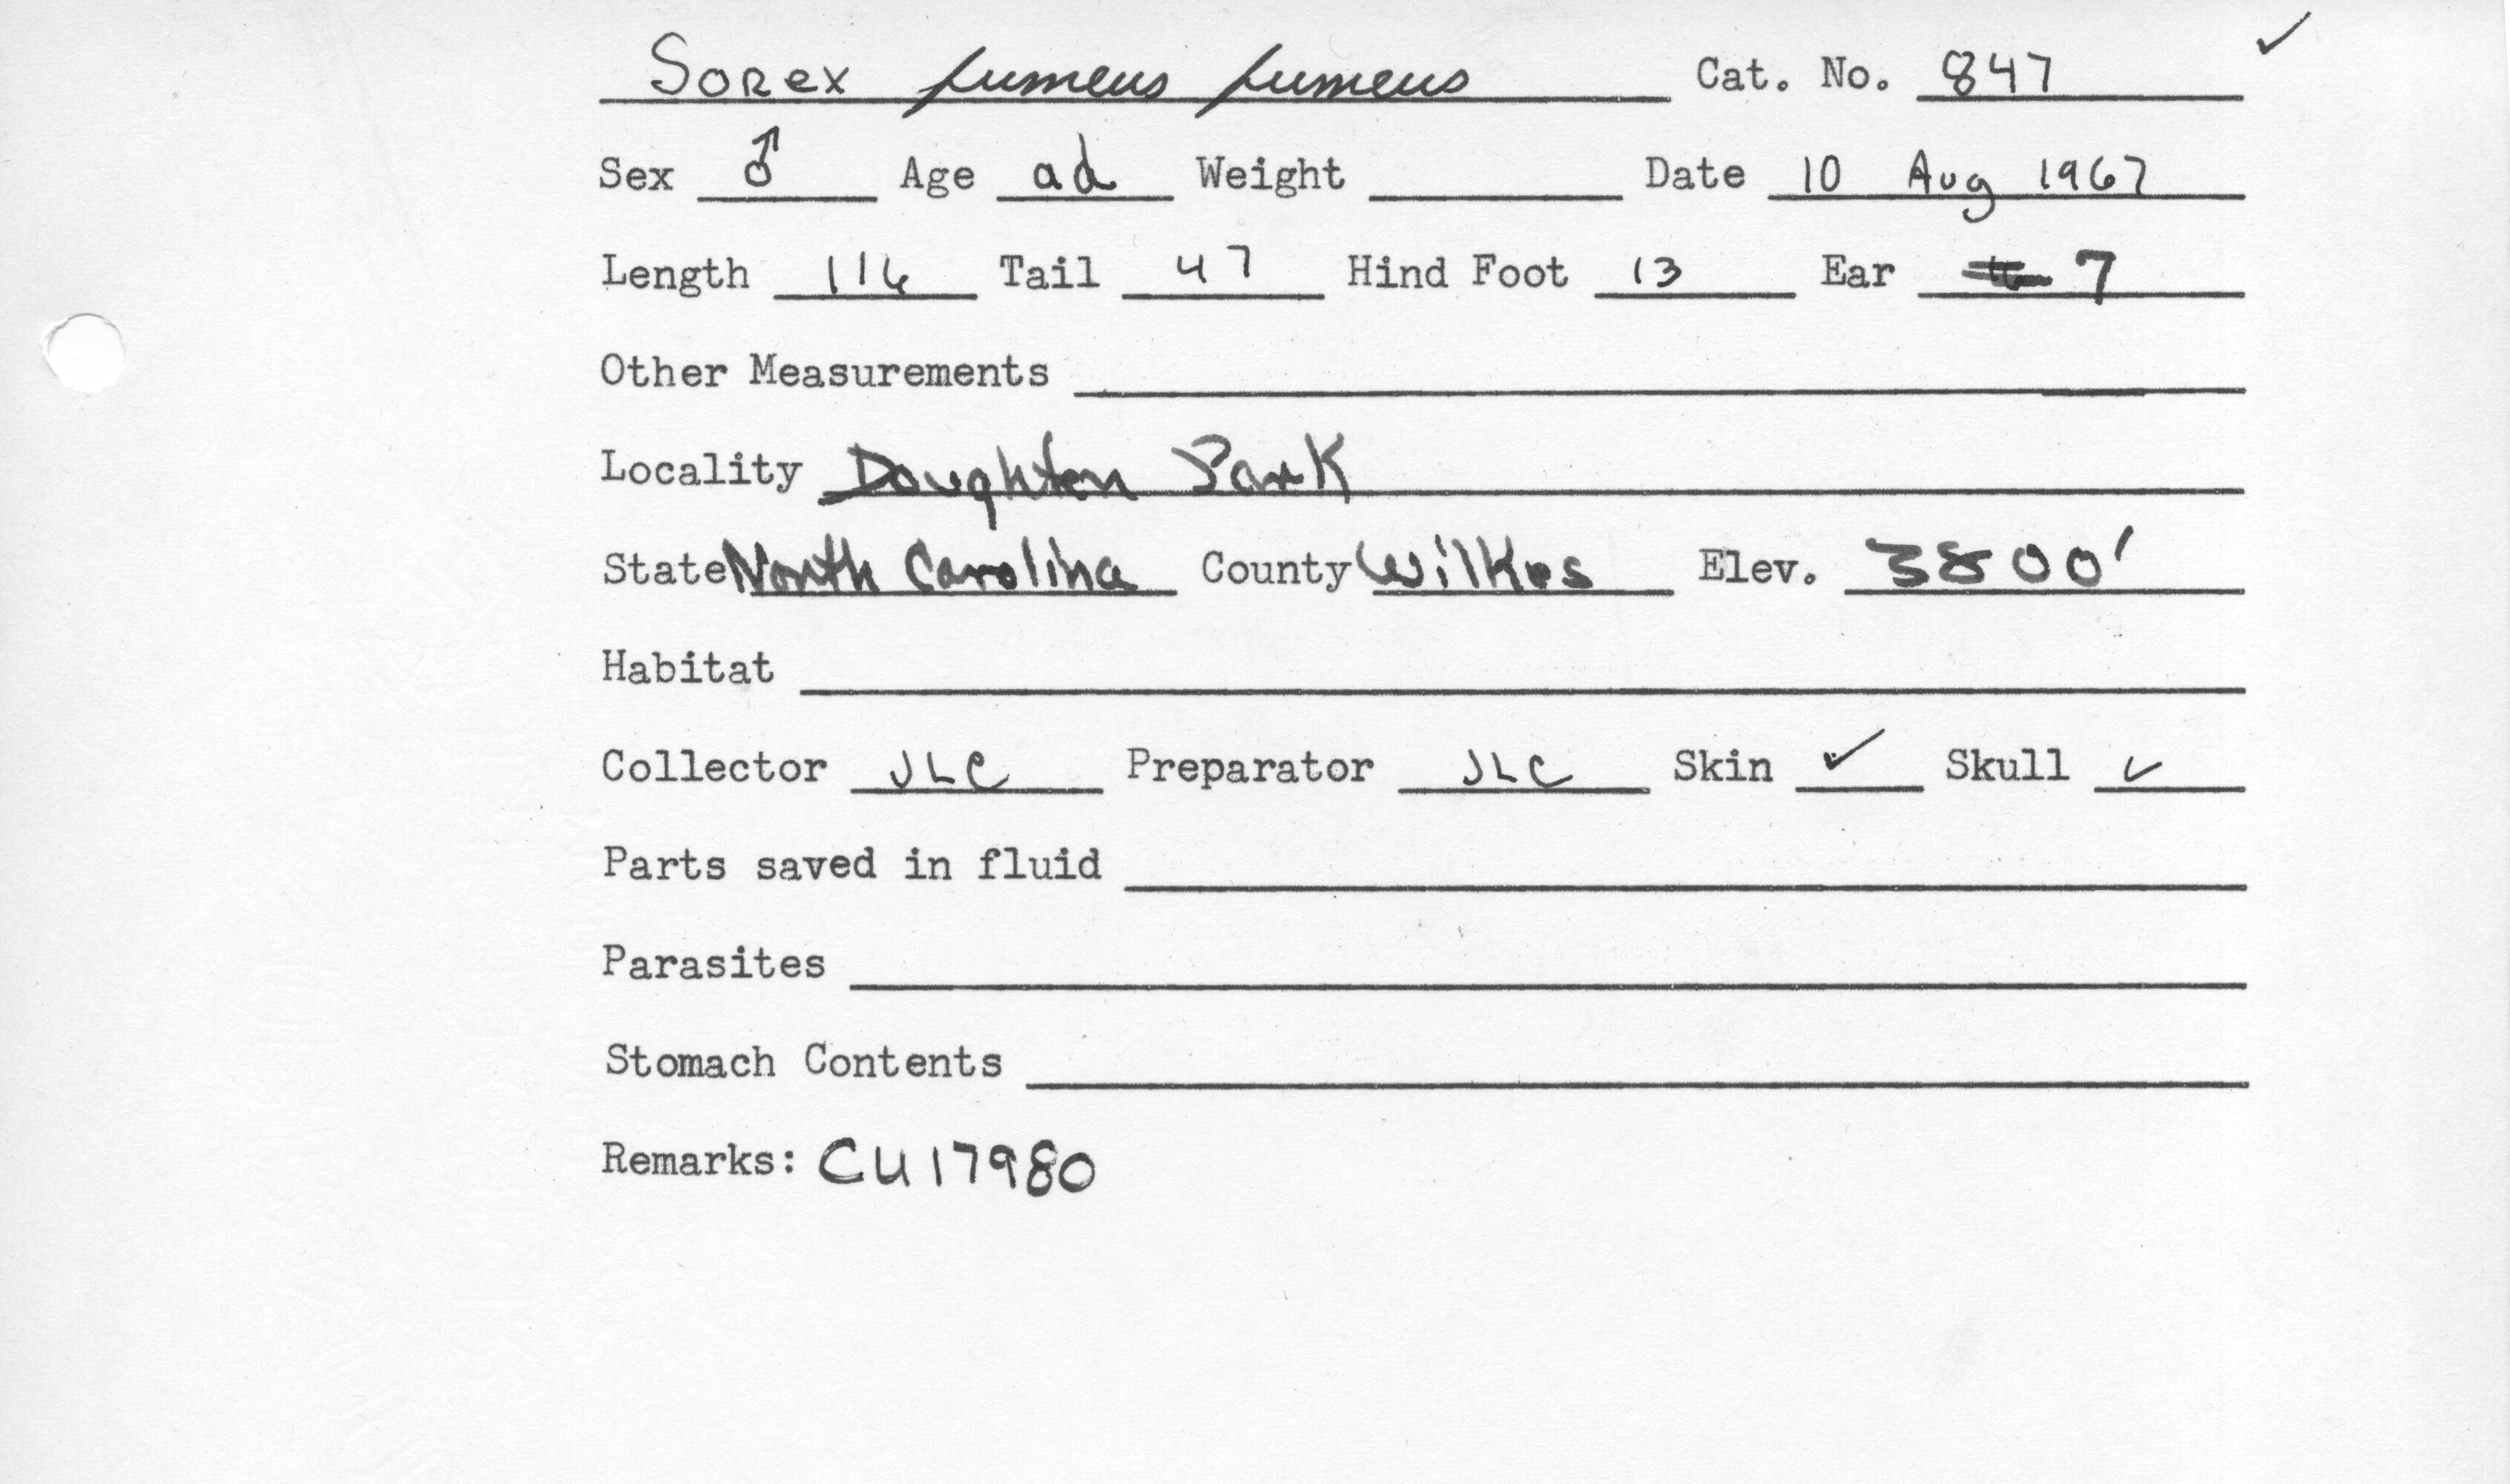 Sorex fumeus fumeus Cat. No. 847 ✓
Sex ♂ Age ad Weight Date 10 Aug 1967
Length 116 Tail 47 Hind Foot 13 Ear 7
Other Measurements
Locality Doughton Park
State North Carolina County Wilkes Elev. 3800'
Habitat
Collector JLC Preparator JLC Skin ✓ Skull ✓
Parts saved in fluid
Parasites
Stomach Contents
Remarks: CU17980